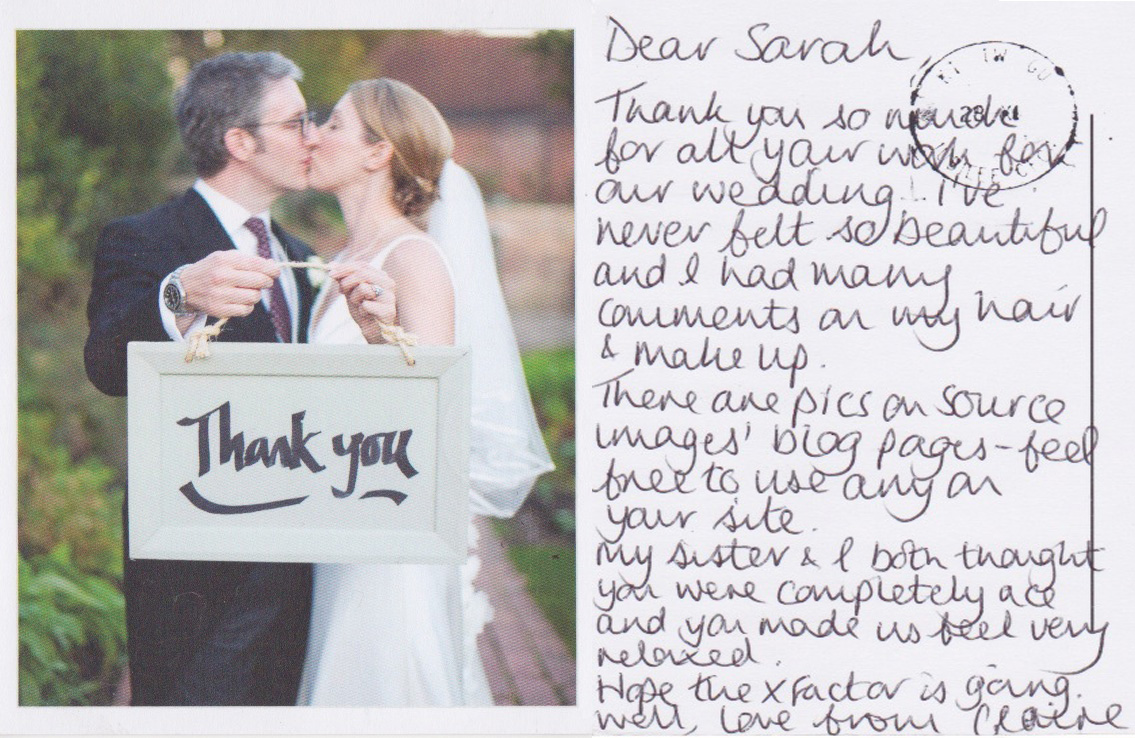 Thank you
Dear Sarah
Thank you so much
for all your work for
our wedding! I've
never felt so beautiful
and I had many
comments on my hair
& make up.
There are pics on source
images' blog pages - feel
free to use any on
your site.
My sister & I both thought
you were completely ace
and you made us feel very
relaxed.
Hope the x factor is going
well, love from Claire